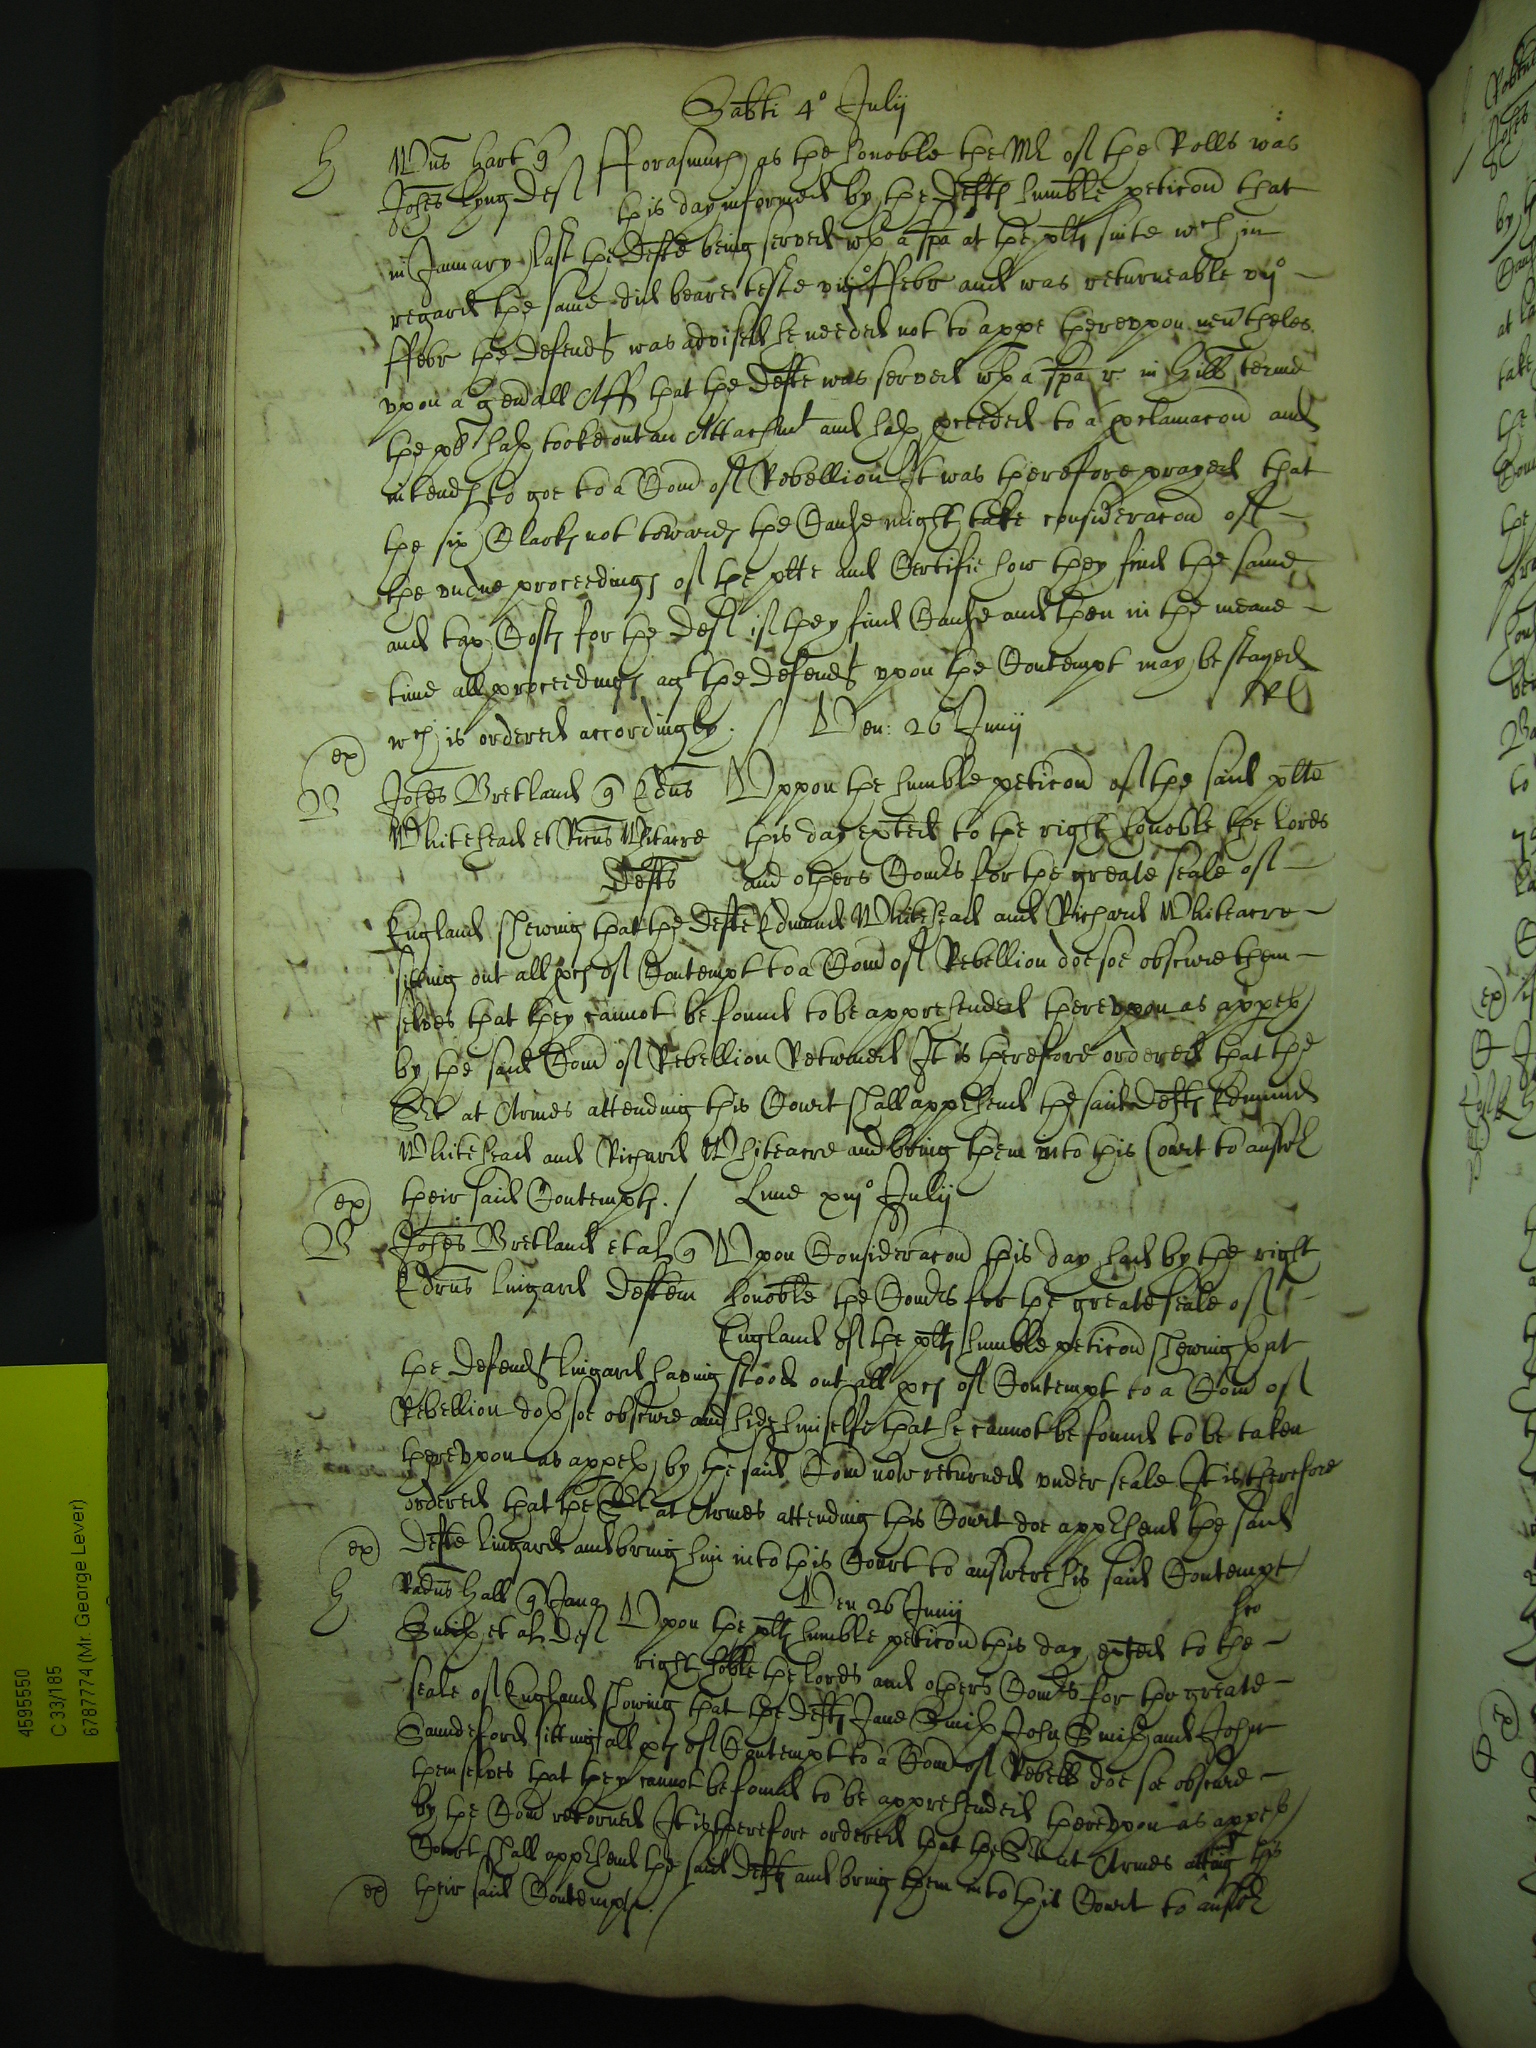 Sabti 4° Julij
H
Wms Hart q
Johes Kyng Def
Fforasmuch as the honoble the Mr of the Rolls was
this day informed by the Defts humble peticon that
in January last the Defte being served wth a spa at the plts suite wch in
regard the same did beare teste viij° Ffebr and was returneable vij°
Ffebr the Defendt was advised he needed not to appe thereuppon neutheles
vpon a genall Aff that the Defte was served wth a spa r in Hill terme
the pl hath tooke out an Attachmt and hath pceeded to a pclamacon and
intends to goe to a Com of Rebellion It was therefore prayed that
the six Clarks not towards the Cause might take consideracon of
the vndue proceedings of the plte and Certifie how they find the same
and tax Costs for the Deft if they find Cause and then in the meane
time all proceedings agt the Defendt vpon the Contempt may be stayed
wch is ordered accordingly. /
Ven: 26 Junij
ex
B
Johes Bretland q Edus
Whitehead et Ricus Whitacre
Defts
Vppon the humble peticon of the said plte
this day exted to the right honoble the lords
and others Comrs for the greate seale of
England shewing that the Defte Edmund Whitehead and Richard Whiteacre
sitting out all pcs of Contempt to a Com of Rebellion doe soe obscure them
selves that they cannot be found to be apprehended thereuppon as appeth
by the said Com of Rebellion Returned It is therefore ordered that the
Srt at Armes attending this Court shall apprhend the said Defts Edmund
Whitehead and Richard Whiteacre and bring them into this Court to answr
their said Contempts. /
Lune xiij° Julij
ex
B
Johes Bretland et al q
Edrus Lingard Deftem
Vpon Consideracon this day had by the right
honoble the Comrs for the greate seale of
England of the plts humble peticon shewing that
the Defendt Lingard having stood out all pcs of Contempt to a Com of
Rebellion doth soe obscure and hide himselfe that he cannot be found to be taken
thereuppon as appeth by the said Com now returned vnder seale It is therefore
ordered that the Srt at Armes attending this Court doe apprhend the said
Defte Lingard and bring him into this Court to answere his said Contempt
ex
H
Radus Hall q Jana
Smith et al Def
Ven 26 Junij
Vpon the plts humble peticon this day exted to the
right hoble the lords and others Comrs for the greate
seale of England showing that the Defts Jane Smith John Smith and John
Saundeford sitting all pcs of Contempt to a Com of Rebell doe soe obscure
themselves that they cannot be found to be apprehended thereuppon as appeth
by the Com retorned It is therefore ordered that the Srt at Armes atting this
Court shall apprhend the said Defts and bring them into this Court to answr
their said Contempts. /
ex
4595550
C 33/185
6787774 (Mr. George Lever)